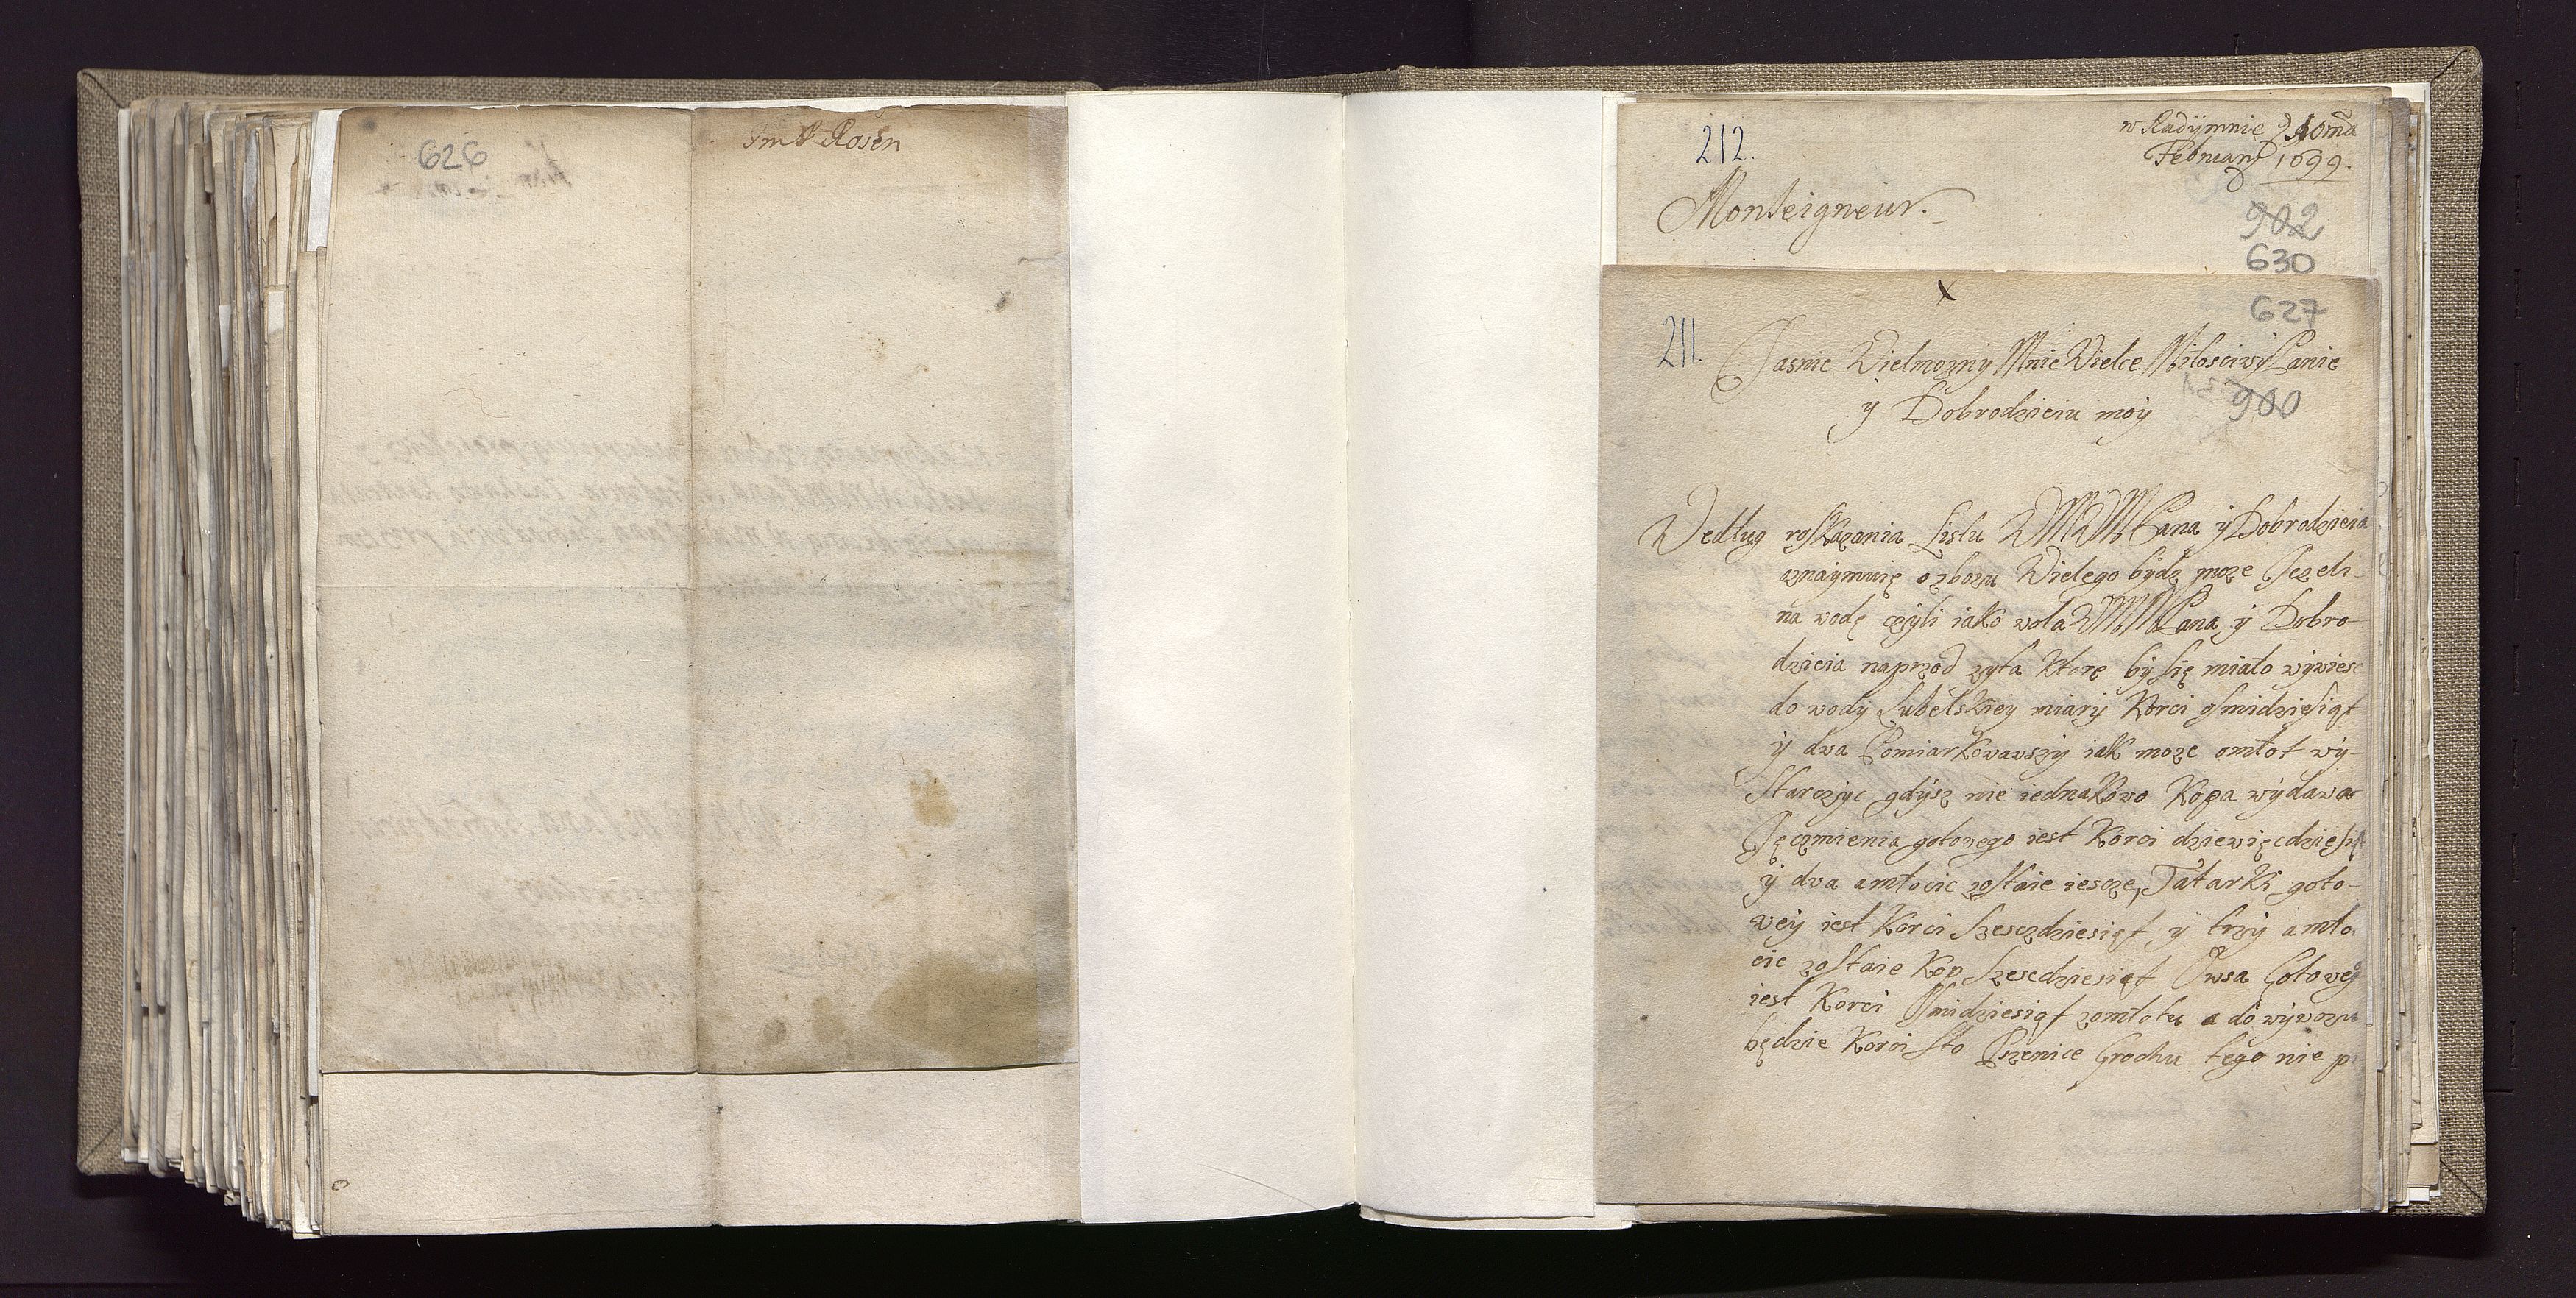 626
Rosen
212.
w Radÿmnie
Februarÿ 1699.
Monseigneur.
902
630
627
211.
Jasnie Wielmozny Mnie Wielce Miłosciwÿ Panie
900
ÿ Dobrodzieiu moÿ
Według roskazania Listu WMM Pana ÿ Dobrodzieia
oznaÿmuię o zbozu Wielego bÿdz moze Jezeli
na wodę czÿli iako wola WMM Pana ÿ Dobro-
dzieia naprzod zyta ktore bÿ się miało wÿwiesc
do wodÿ Lubelskieÿ miarÿ Korci osmidziesiąt
ÿ dwa Pomiarkowawszÿ iak moze omłot wÿ-
starczÿc gdÿsz nie iednakowo Kopa wÿdawa
Jęczmienia gotowego iest Korci dziewięcdziesią
ÿ dwa a młocic zostaie iescze, Tatarki goto-
weÿ iest Korci szesczdziesiąt ÿ trzÿ a mło
cic zostaie Kop szescdziesiąt Owsa Gotoweg
iest Korci Osmidziesiąt zomłotu a do wÿwozu
będzie Korci sto Pszenice Grochu tego nie